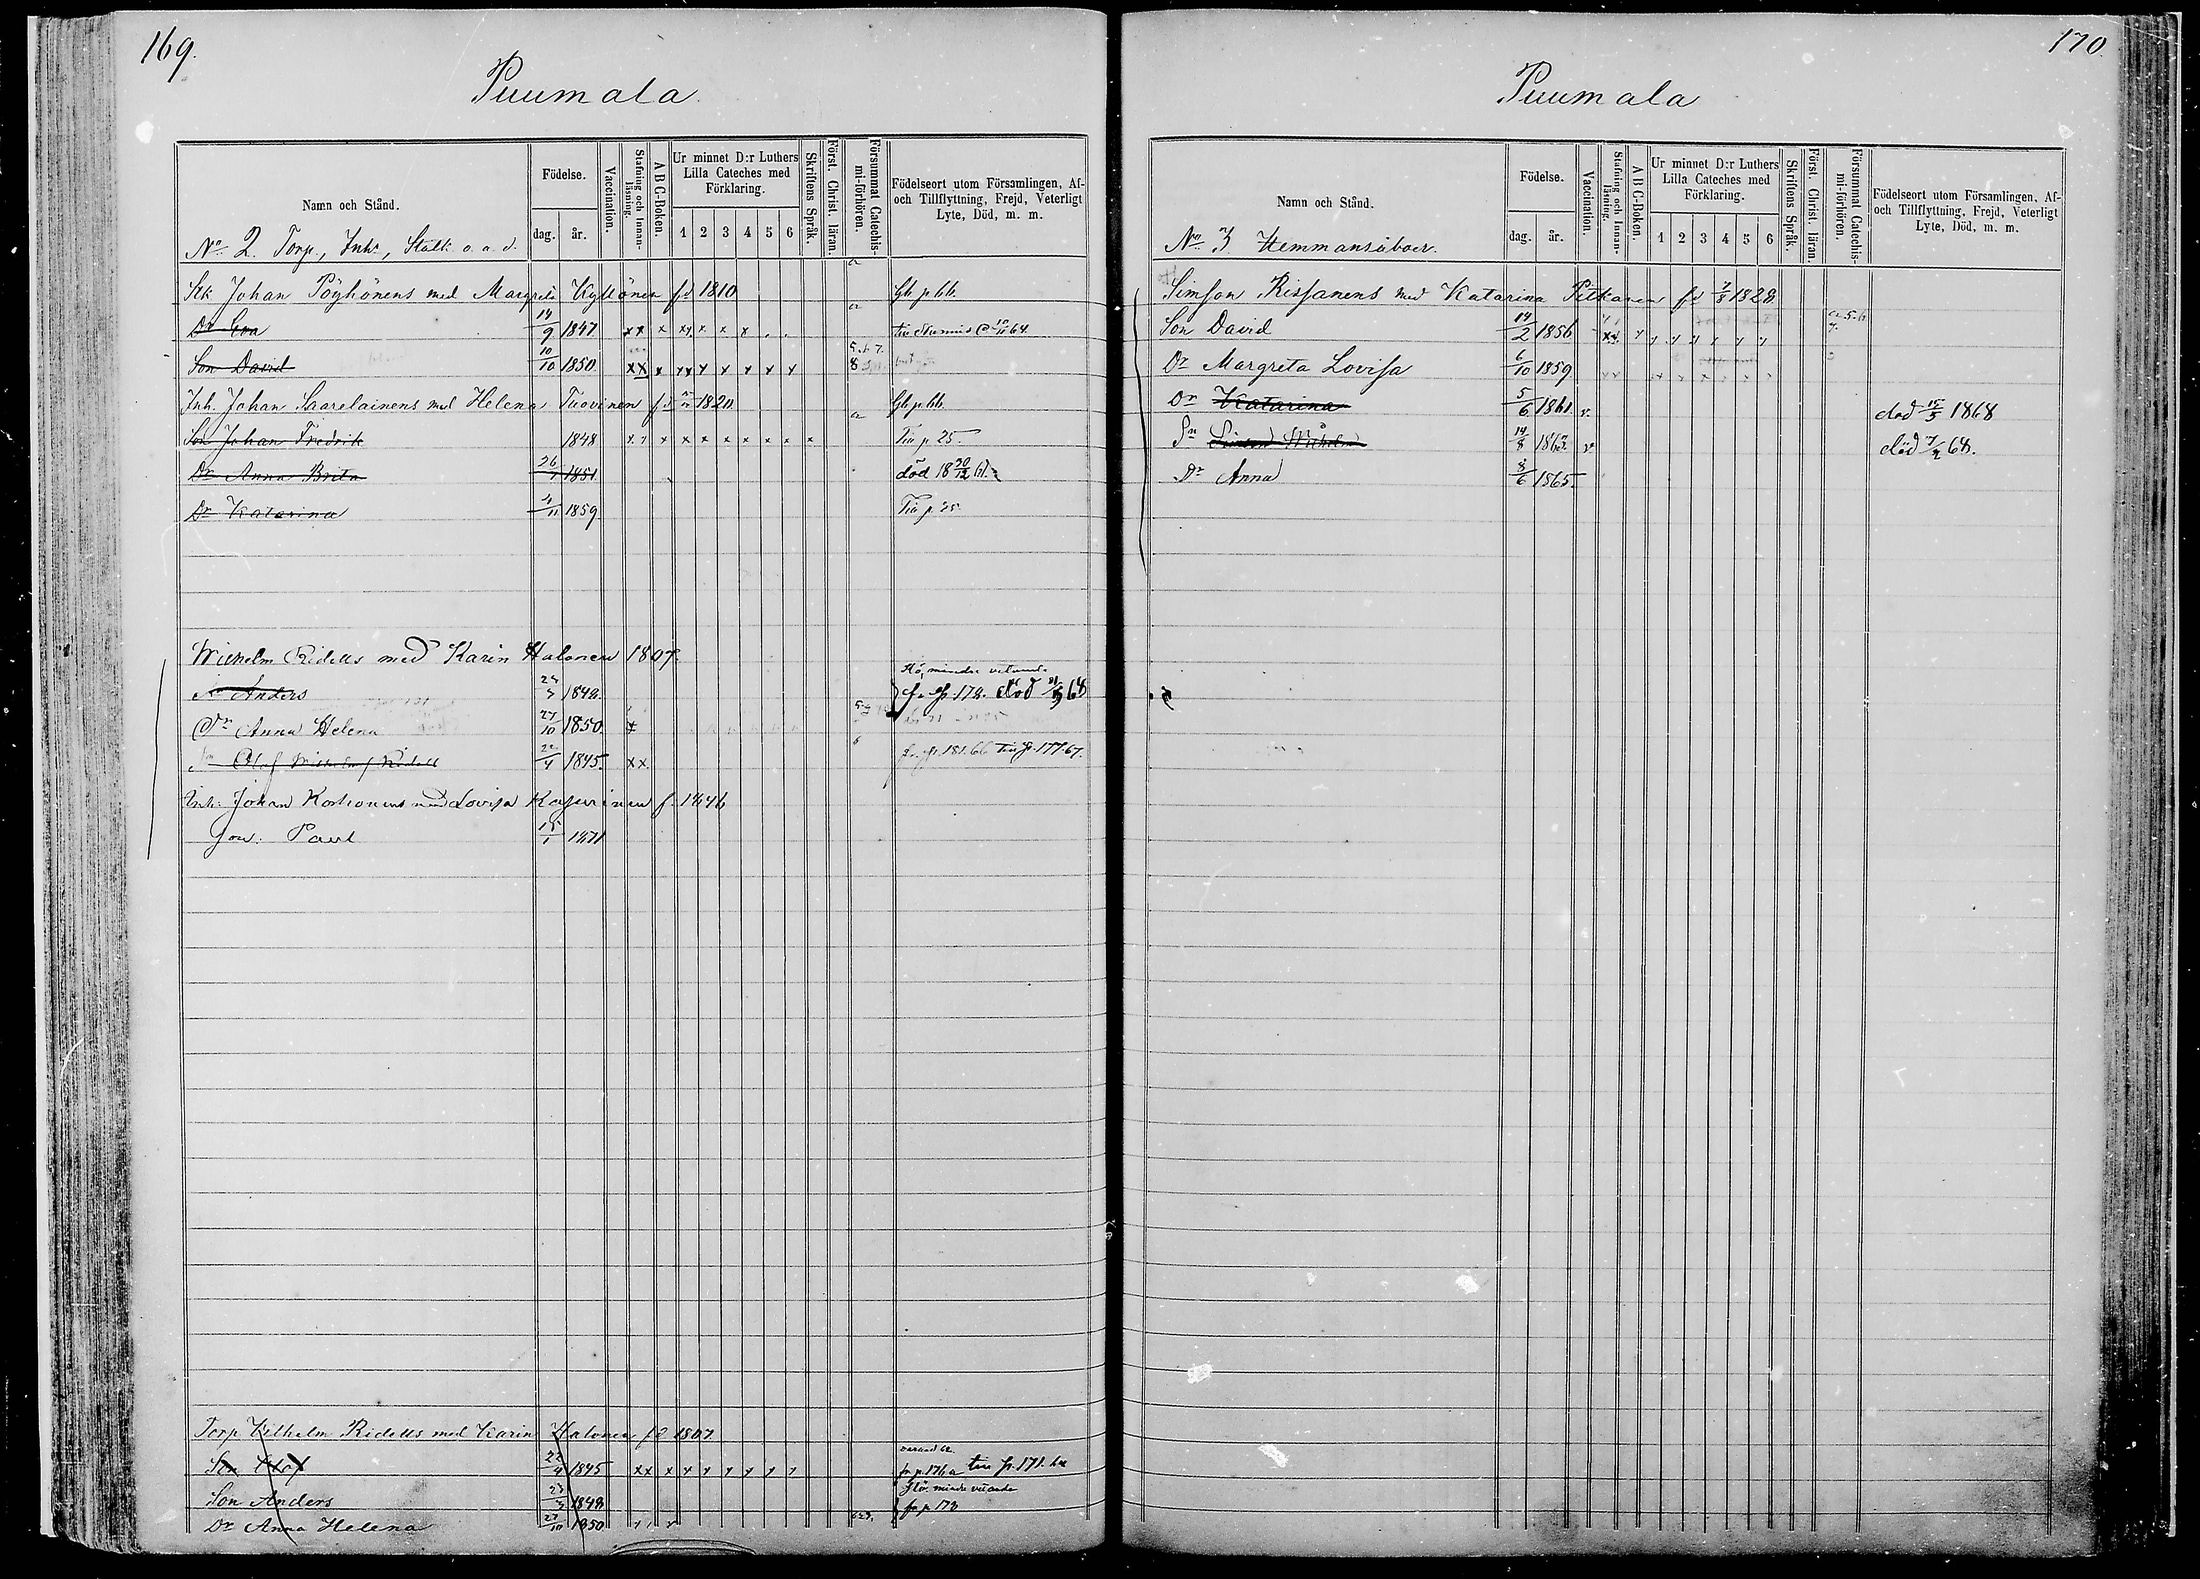 169.
Puumala
Namn och Stånd.
Födelse.
dag.
år.
Vaccination.
Stafning och Innanläsning.
A B C-Boken.
Ur minnet D:r Luthers Lilla Cateches med Förklaring.
1 2 3 4 5 6
Skriftens Språk.
Först. Christ. läran.
Försummat Catechismi-förhören.
Födelseort utom Församlingen, Af- och Tillflyttning, Frejd, Veterligt Lyte, Död, m. m.
No 2. Torp., Inhs, Stattk. o. a. d.
Johan Pöyhönens med Margreta Kyllönen fd 1810
Dr Eva 14/9 1847 xx x x x x x
Son David 10/10 1850 xx x x x x x x x
Inh. Johan Saarelainens med Helena Tuovinen 1820
Son Johan Fredrik 1848 x x x x x x x x x Til p. 25
Dr Anna Brita 1851 död 18 30/12 61
Dr Katarina 4/11 1859 Til p. 25
Wilhelm Ridells med Karin Halonen 1807.
Anders 23/3 1848. mindre vetande
Dr Anna Helena 27/10 1850. x
Olof Wilhelm Ridell 22/4 1845. xx. fr. p. 181. 66 till p. 177. 67.
Inh. Johan med Lovisa f. 1846
Son. Paul 15/1 1871
Torp Wilhelm Ridells med Karin Halonen fd 1807
Son Olof 22/4 1845 xx x x x x x x x
Son Anders 23/3 1848 mindre vetande
Dr Anna Helena 27/10 1850
170.
Puumala
Namn och Stånd.
Födelse.
dag.
år.
Vaccination.
Stafning och Innanläsning.
A B C-Boken.
Ur minnet D:r Luthers Lilla Cateches med Förklaring.
1 2 3 4 5 6
Skriftens Språk.
Först. Christ. läran.
Försummat Catechismi-förhören.
Födelseort utom Församlingen, Af- och Tillflyttning, Frejd, Veterligt Lyte, Död, m. m.
No 3. Hemmansåboer.
Simson Rissanens med Katarina Pitkänen fd 7/8 1828
Son David 14/2 1856
Dr Margreta Lovisa 6/10 1859
Dr Katarina 5/6 1861. v. död 15/5 1868
Sn Simson Wilhelm 14/8 1863. v död 7/2 68.
Dr Anna 8/6 1865.